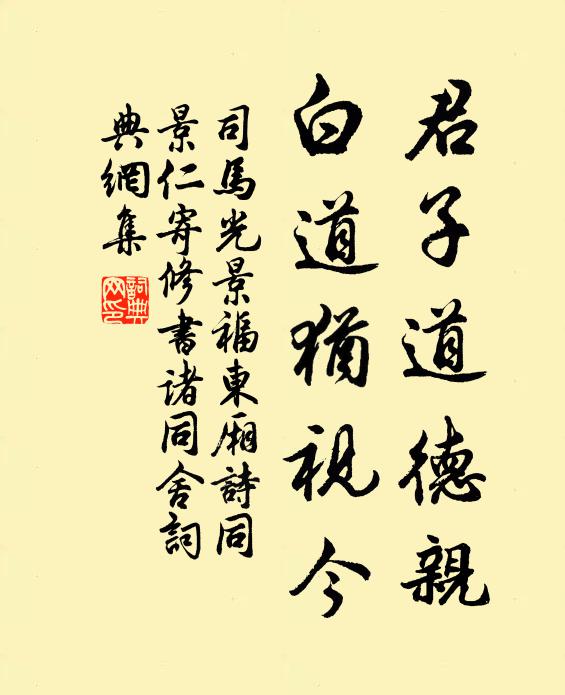 君子道德親
白道猶視今
司馬光景福東廂詩同
景仁寄修書诸同舍詞
典網集
詞典
网印